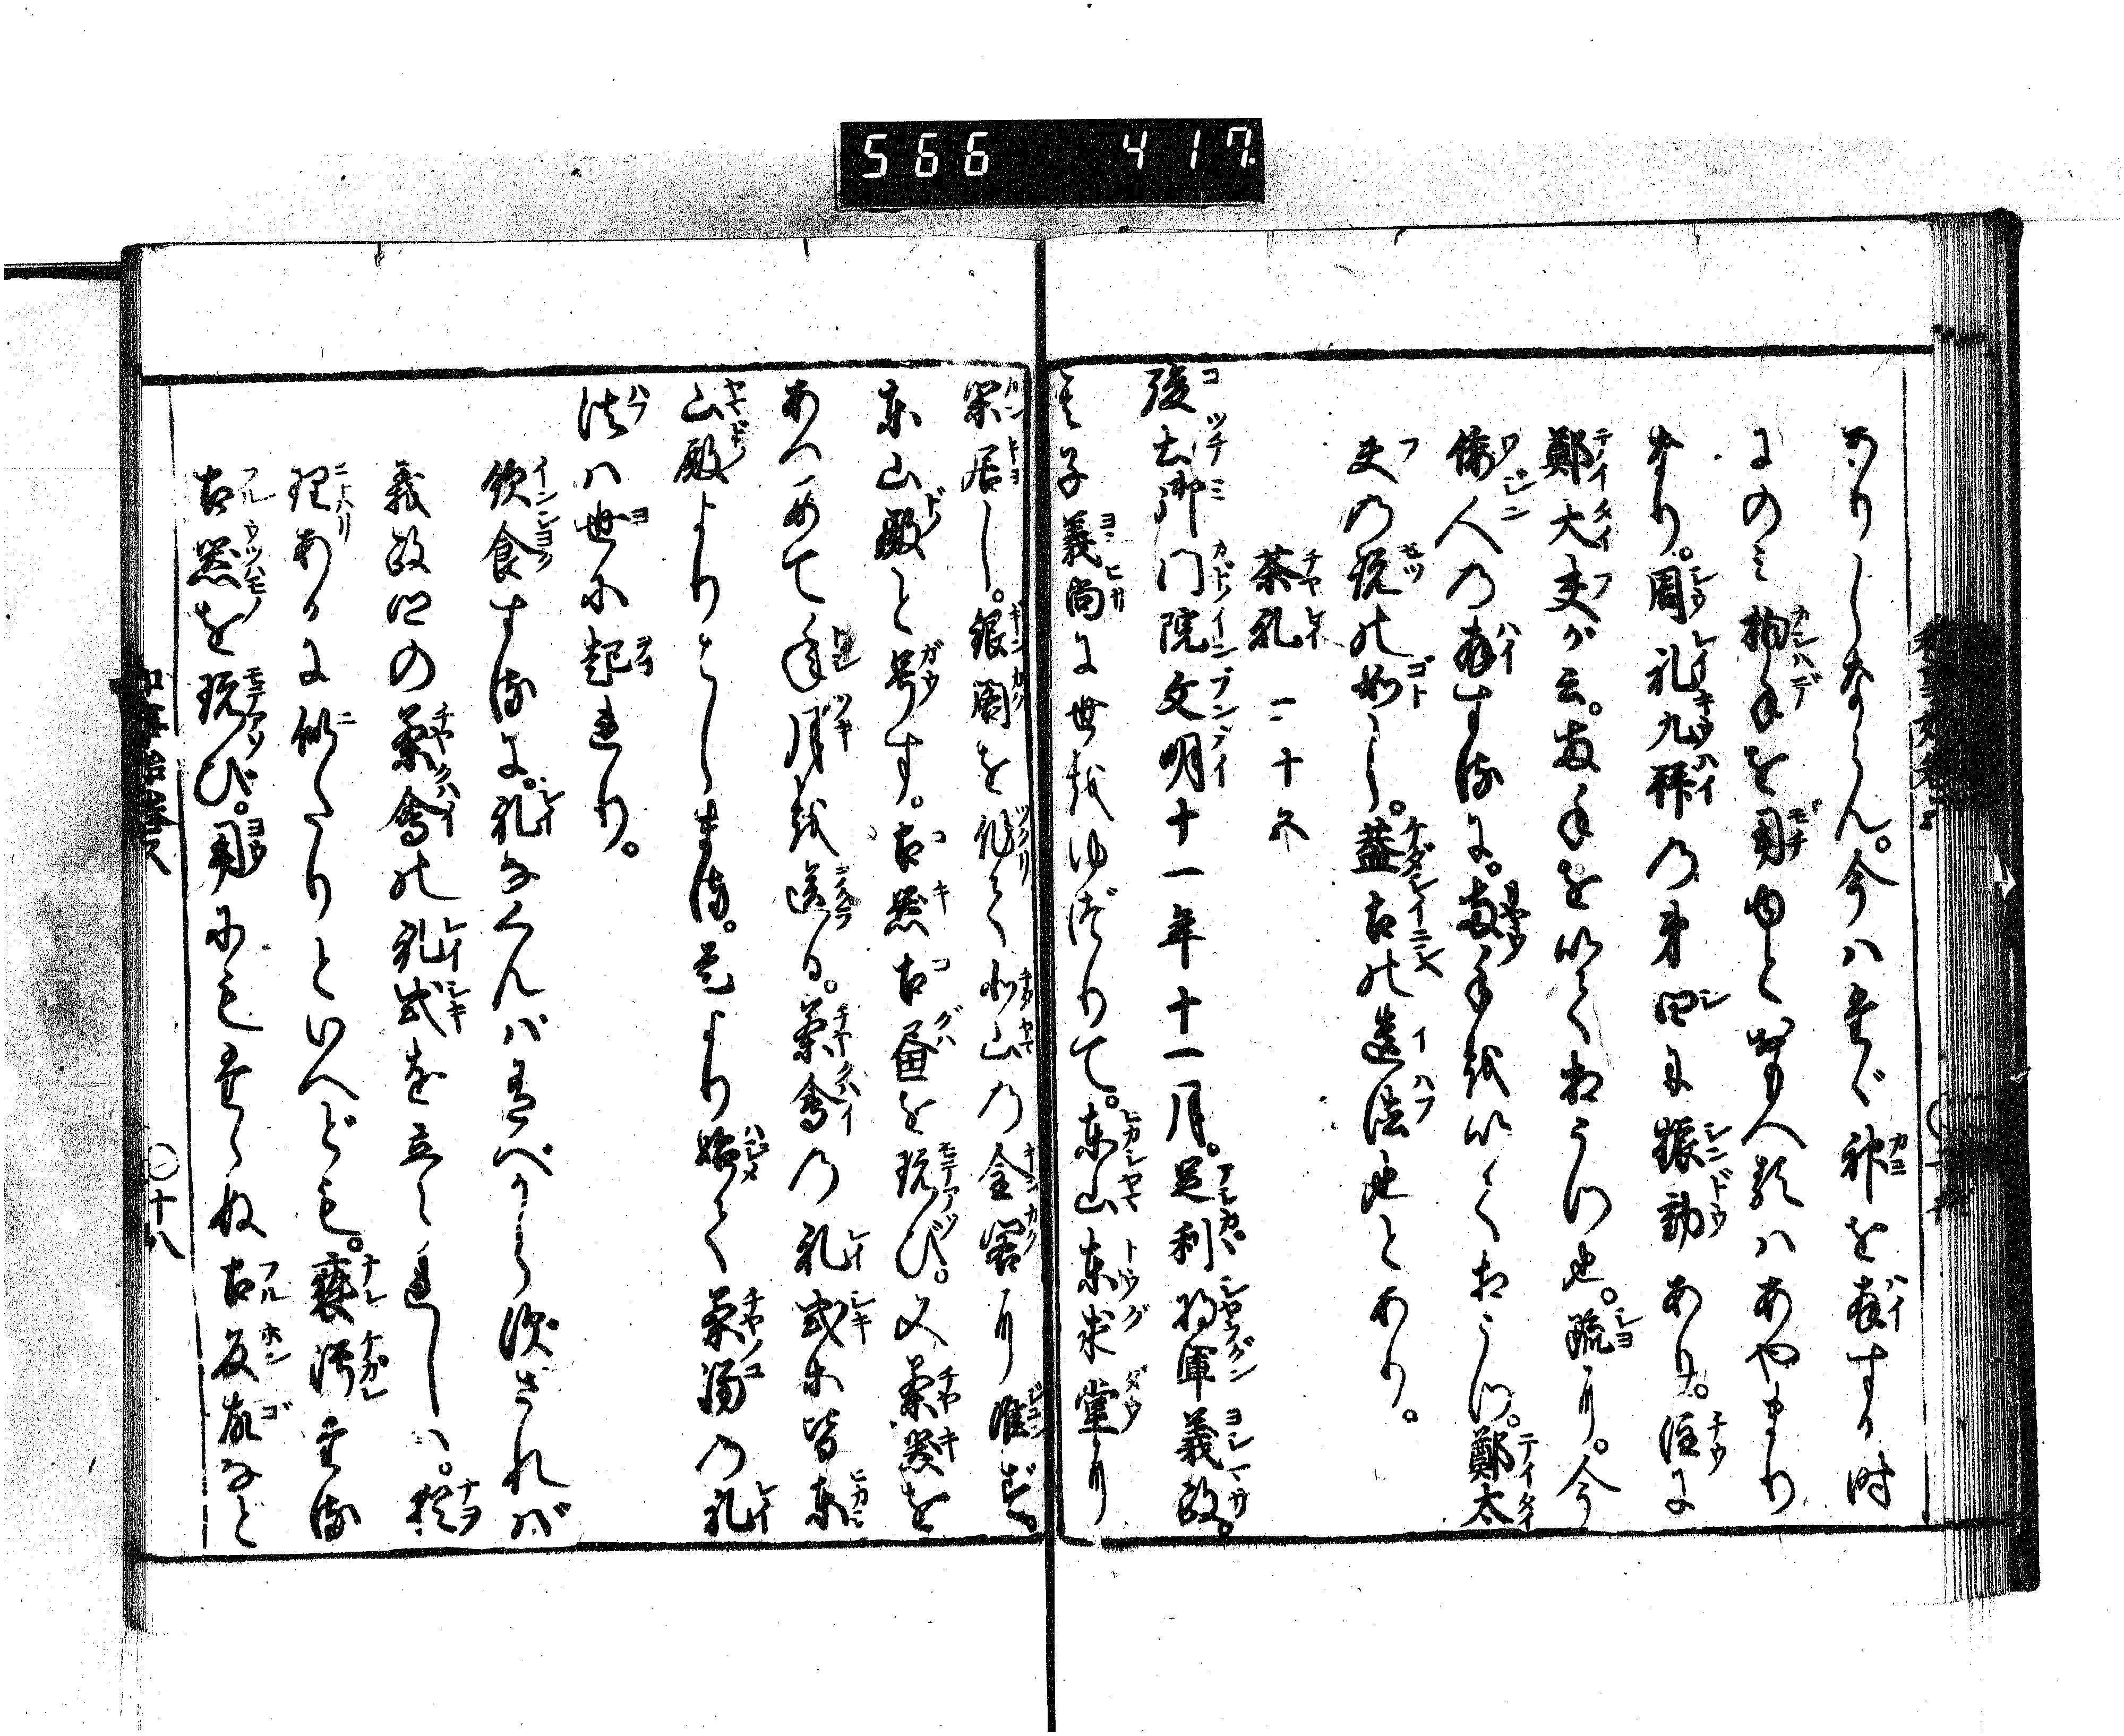 566 417
なりしならん。今ハたゞ神を拝する時
にのミ拍手を用ゆと心得る人類ハあやまり
なり。周礼九拝の第四に振動あり。注に
鄭大夫が云。両手を以て相うつ也。疏に。今
倭人の拝する に。両手を以て相うつ。鄭大
夫の説の如し。蓋古の遺法也とあり。
茶礼 二十九
後土御門院文明十一年十一月。足利将軍義政。
其子義尚に世をゆづりて。東山東求堂に
閑居し。銀閣を作りて北山の金閣に准ず。
東山殿と号す。古器古画を玩び。又茶器を
あつめて年月を送る。茶会の礼式等皆東
山殿よりはじまる。是より始て茶湯の礼
法ハ世に起れり。
飲食するに。礼なくんバあるべからず。されバ
義政公の茶会の礼式を立られしハ。
理あるに似たりといへども。褻汚 る
古器を玩び。用にもたゝぬ古反故など
十八